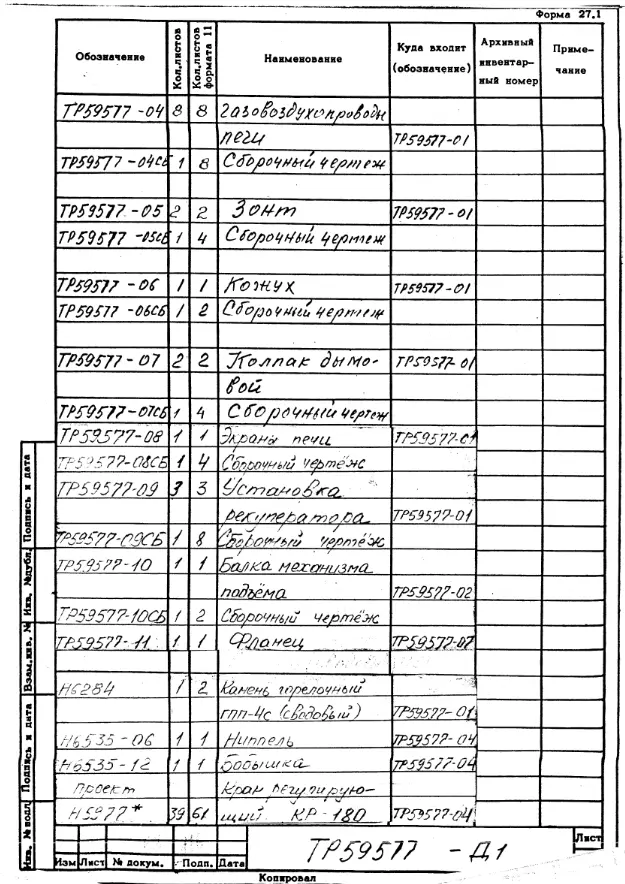 Форма 27.1
Обозначение Кол.листов Кол.листов формата 11 Наименование Куда входит (обозначение) Архивный инвентарный номер Примечание
ТР59577-04 8 8 Газовоздухопроводы
печи ТР59577-01
ТР59577-04СБ 1 8 Сборочный чертеж
ТР59577-05 2 2 Зонт ТР59577-01
ТР59577-05СБ 1 4 Сборочный чертеж
ТР59577-06 1 1 Кожух ТР59577-01
ТР59577-06СБ 1 2 Сборочный чертеж
ТР59577-07 2 2 Колпак дымо-
вой ТР59577-01
ТР59577-07СБ 1 4 Сборочный чертеж
ТР59577-08 1 1 Экраны печи ТР59577-01
ТР59577-08СБ 1 4 Сборочный чертёж
ТР59577-09 3 3 Установка
рекуператора ТР59577-01
ТР59577-09СБ 1 8 Сборочный чертёж
ТР59577-10 1 1 Балка механизма
подъёма ТР59577-02
ТР59577-10СБ 1 2 Сборочный чертёж
ТР59577-11 1 1 Фланец ТР59577-07
Н6284 1 2 Камень горелочный
гпп-4с (сводовый) ТР59577-01
Н6535-06 1 1 Ниппель ТР59577-04
Н6535-12 1 1 Бобышка ТР59577-04
проект Кран регулирую-
Н5977* 39 61 щий КР-180 ТР59577-04
Инв. № подл. Подпись и дата Взам.инв. № Инв. №дубл. Подпись и дата
Изм Лист № докум. Подп. Дата
ТР59577-Д1
Лист
Копировал